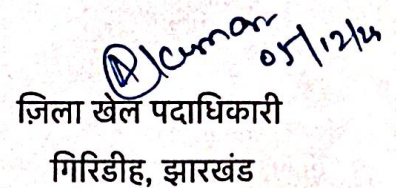 Kumar
05/12/25
ज़िला खेल पदाधिकारी
गिरिडीह, झारखंड